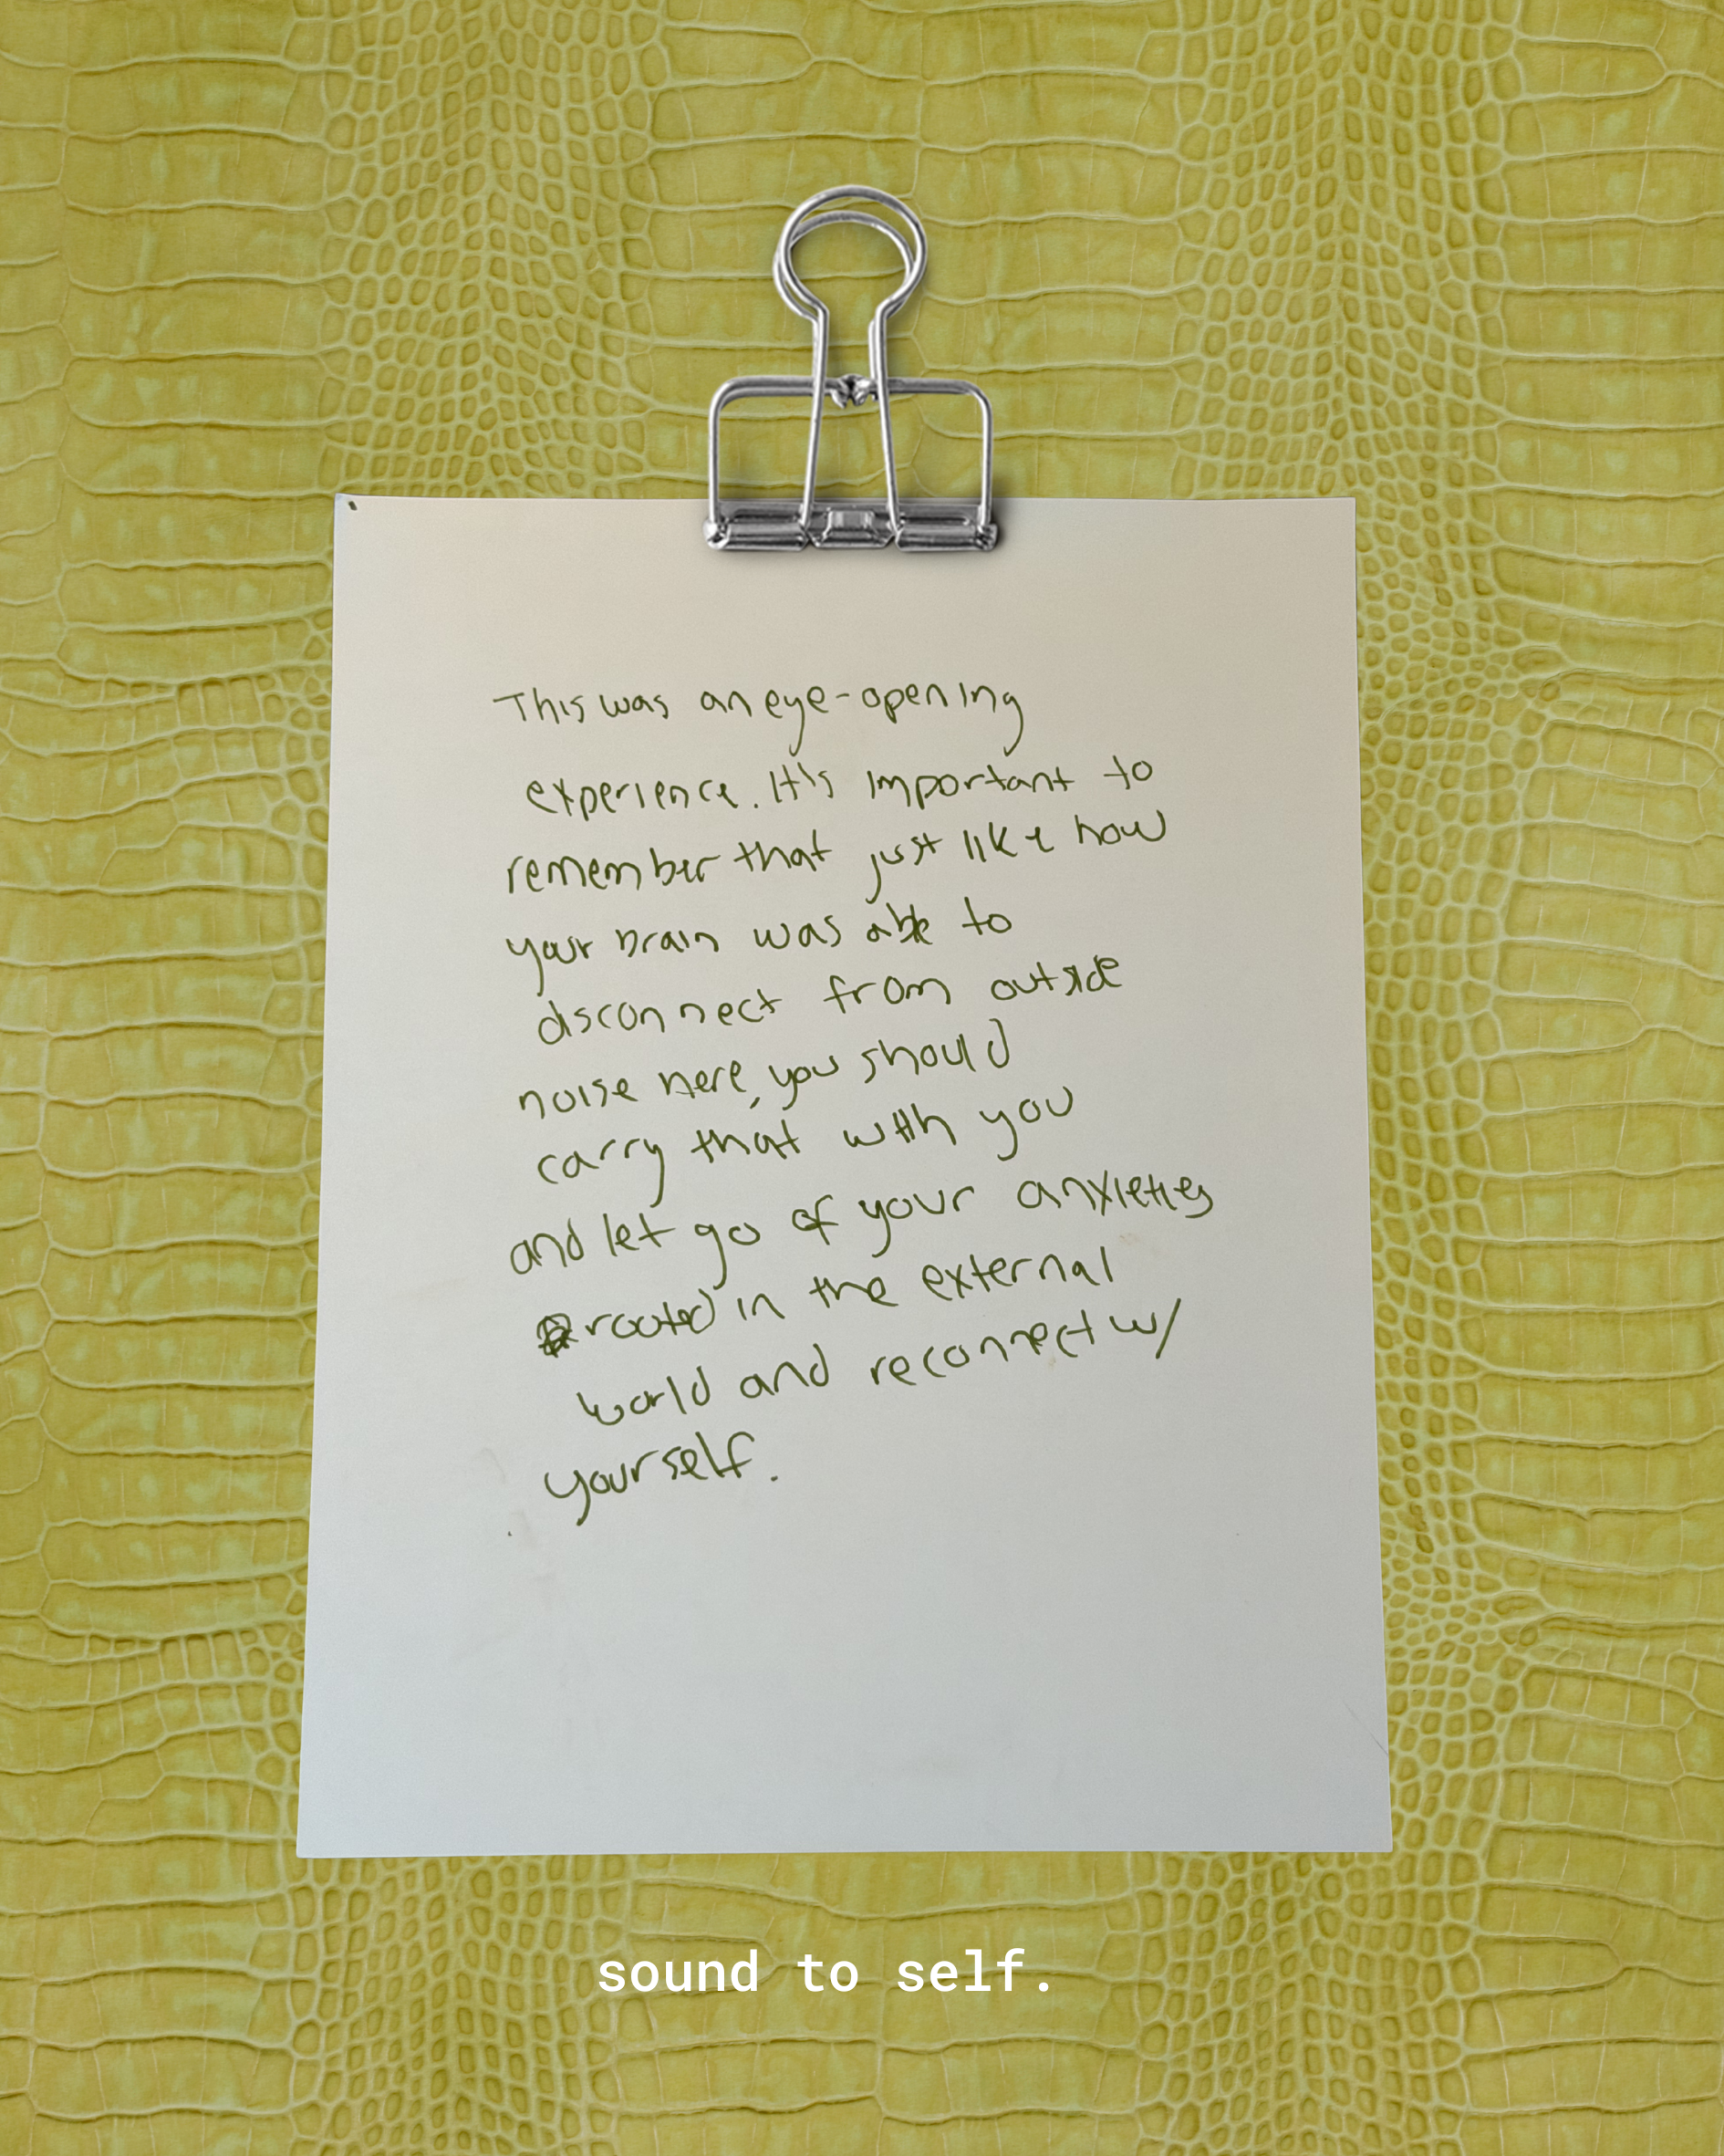 This was an eye-opening
experience. It's important to
remember that just like how
your brain was able to
disconnect from outside
noise here, you should
carry that with you
and let go of your anxieties
rooted in the external
world and reconnect w/
yourself.
sound to self.